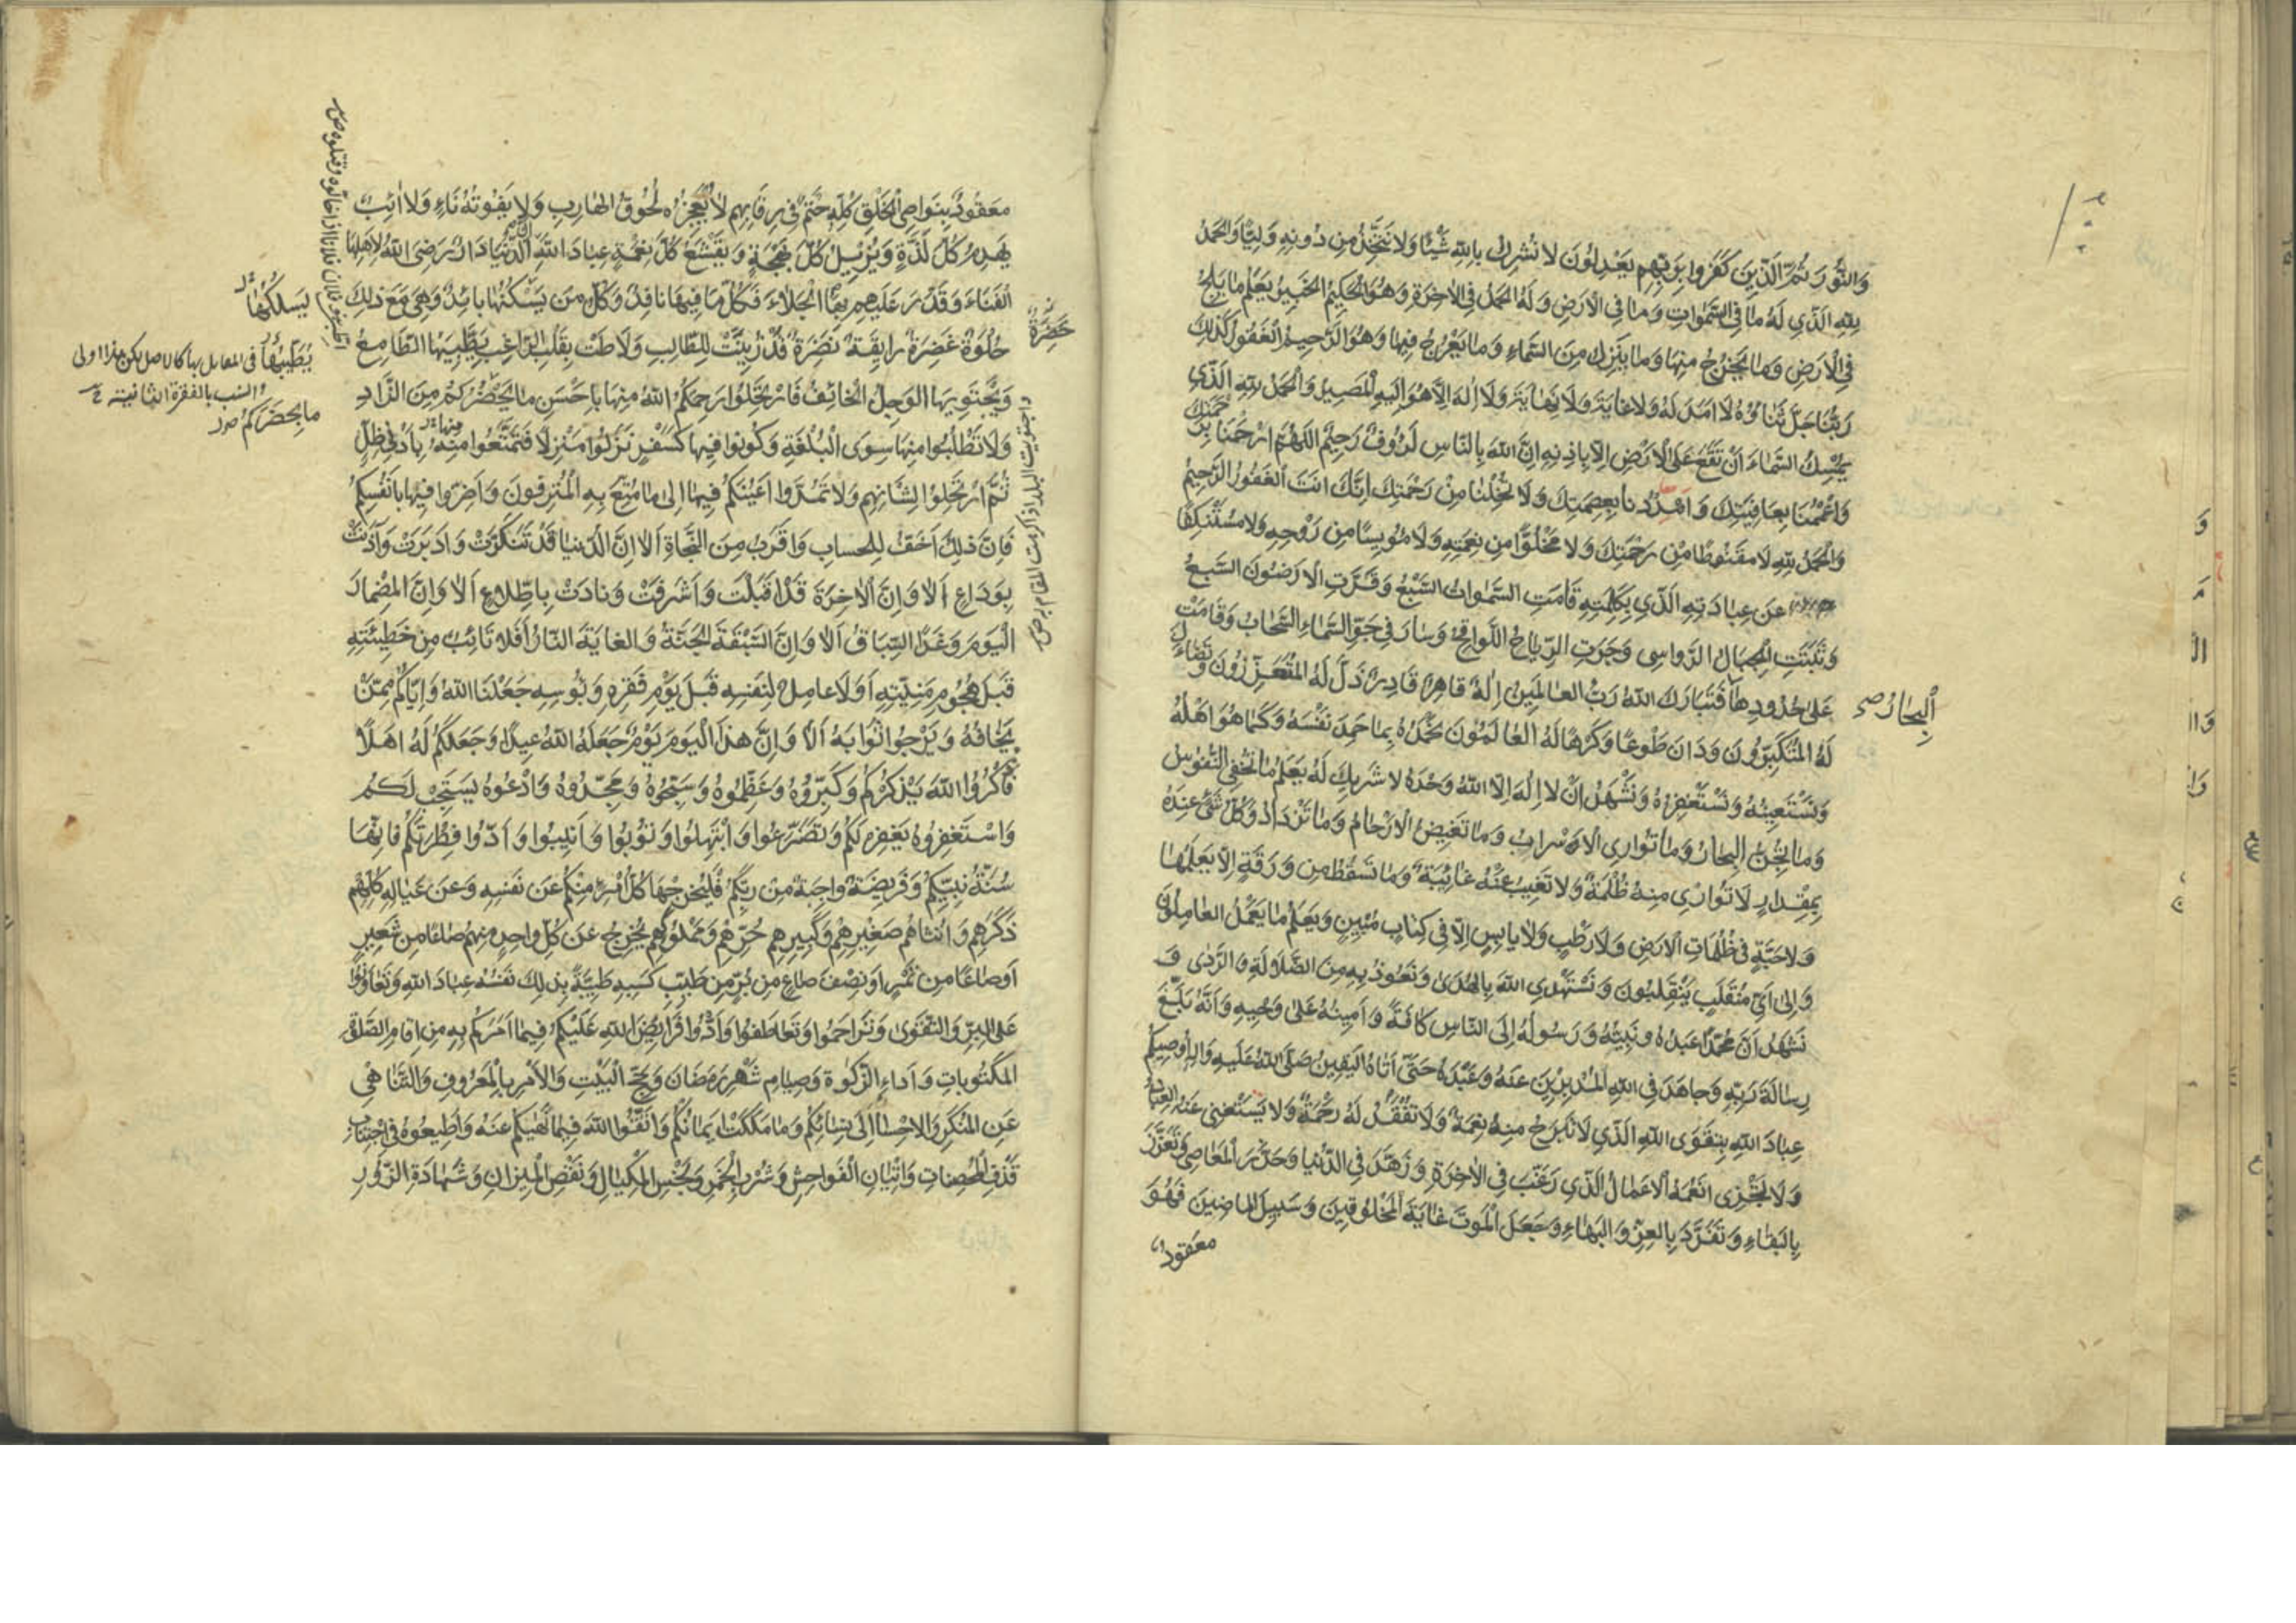 وَالنُّورَ ثُمَّ الَّذِينَ كَفَرُوا بِرَبِّهِم يَعْدِلُونَ لا نُشرِكُ بِاللهِ شَيْئًا وَلا نَتَّخِذُ مِن دُونِهِ وَلِيًّا وَالحَمدُ
لِلّهِ الَّذِي لَهُ مَا فِي السَّمٰواتِ وَمَا فِي الاَرضِ وَلَهُ الحَمدُ فِي الاٰخِرَةِ وَهُوَ الحَكِيمُ الخَبِيرُ يَعلَمُ مَا يَلِجُ
فِي الاَرضِ وَمَا يَخرُجُ مِنهَا وَمَا يَنزِلُ مِنَ السَّمَاءِ وَمَا يَعْرُجُ فِيهَا وَهُوَ الرَّحِيمُ الغَفُورُ كَذٰلِكَ
رَبُّنَا جَلَّ ثَنَاؤُهُ لَا اَمَدَ لَهُ وَلا غَايَةَ وَلَا نِهَايَةَ وَلَا اِلٰهَ اِلَّا هُوَ وَاِلَيهِ المَصِيرُ وَالحَمدُ لِلّهِ الَّذِي
يُمْسِكُ السَّمَاءَ اَنْ تَقَعَ عَلَى الاَرْضِ اِلَّا بِاِذنِهِ اِنَّ اللهَ بِالنَّاسِ لَرَؤُوفٌ رَحِيمٌ اللّهُمَّ ارْحَمنَا بِرَحْمَتِكَ
وَاعْمُمْنَا بِعَافِيَتِكَ وَامْدُدْنا بِعِصمَتِكَ وَلَا تُخْلِنَا مِنْ رَحْمَتِكَ اِنَّكَ انَتَ الغَفُورُ الرَّحِيمُ
وَالحَمدُ لِلّهِ لَا مَقنُوطًا مِن رَحْمَتِكَ وَلَا مَخْلُوًّا مِن نِعمَتِهِ وَلَا مُويِسًا مِن رَوْحِهِ وَلَا مُستَنكِفًا
عَن عِبَادَتِهِ الَّذِي بِكَلِمَتِهِ قَامَتِ السَّمٰواتُ السَّبْعُ وَقَرَّتِ الاَرَضُونَ السَّبعُ
وَثَبَتَتِ الجِبَالُ الرَّوَاسِي وَجَرَتِ الرِّيَاحُ اللَّوَاقِحُ وَسَارَ فِي جَوِّ السَّمَاءِ السَّحَابُ وَقَامَتْ
عَلَى حُدُودِهَا فَتَبَارَكَ اللهُ رَبُّ العَالَمِينَ اِلٰهٌ قَاهِرٌ قَادِرٌ ذَلَّ لَهُ المُتَعَزِّزُونَ وَتَضَاءَلَ
البِحَارُ صح
لَهُ المُتَكَبِّرُونَ وَدَانَ طَوعًا وَكَرهًا لَهُ العَالَمُونَ نَحمَدُهُ بِمَا حَمِدَ نَفْسَهُ وَكَمَا هُوَ اَهْلُهُ
وَنَسْتَعِينُهُ وَنَسْتَغْفِرُهُ وَنَشْهَدُ اَنْ لَا اِلٰهَ اِلَّا اللهُ وَحْدَهُ لَا شَرِيكَ لَهُ يَعْلَمُ مَا تُخْفِي النُّفُوسُ
وَمَا تُجِنُّ البِحَارُ وَمَا تُوَارِي الاَسْرَابُ وَمَا تَغِيضُ الاَرْحَامُ وَمَا تَزْدَادُ وَكُلُّ شَيْءٍ عِندَهُ
بِمِقْدَارٍ لَا تُوَارِي مِنهُ ظُلْمَةٌ وَلَا تَغِيبُ عَنْهُ غَائِبَةٌ وَمَا تَسقُطُ مِن وَرَقَةٍ اِلَّا يَعلَمُهَا
وَلَا حَبَّةٍ فِي ظُلُمَاتِ الاَرضِ وَلَا رَطْبٍ وَلَا يَابِسٍ اِلَّا فِي كِتَابٍ مُبِينٍ وَيَعلَمُ مَا يَعْمَلُ العَامِلُونَ
وَاِلَى اَيِّ مُنقَلَبٍ يَنقَلِبُونَ وَنَسْتَهْدِي اللهَ بِالهُدَى وَنَعُوذُ بِهِ مِنَ الضَّلَالَةِ وَالرَّدٰى وَ
نَشهَدُ اَنَّ مُحَمَّدًا عَبْدُهُ وَنَبِيُّهُ وَرَسُولُهُ اِلَى النَّاسِ كَافَّةً وَاَمِينُهُ عَلَى وَحْيِهِ وَاَنَّهُ بَلَّغَ
رِسَالَةَ رَبِّهِ وَجَاهَدَ فِي اللهِ المُدبِرِينَ عَنهُ وَعَبَدَهُ حَتَّى اَتَاهُ اليَقِينُ صَلَّى اللهُ عَلَيهِ وَالِهِ اُوصِيكُم
عِبَادَ اللهِ بِتَقوَى اللهِ الَّذِي لَا تَبرَحُ مِنهُ نِعمَةٌ وَلَا تُفْقَدُ لَهُ رَحْمَةٌ وَلَا يَسْتَغنِي عَنهُ العِبَادُ
وَلَا تَجْزِي اَنعُمَهُ الاَعمَالُ الَّذِي رَغَّبَ فِي الاٰخِرَةِ وَزَهَّدَ فِي الدُّنْيَا وَحَذَّرَ المَعَاصِيَ وَتَعَزَّزَ
بِالبَقَاءِ وَتَفَرَّدَ بِالعِزِّ وَالبَهَاءِ وَجَعَلَ المَوتَ غَايَةَ المَخْلُوقِينَ وَسَبِيلَ المَاضِينَ فَهُوَ
معقود
مَعقُودٌ بِنَوَاصِي الخَلْقِ كُلِّهِ حَتْمٌ فِي رِقَابِهِم لَا يُعْجِزُهُ لُحُوقُ الهَارِبِ وَلَا يَفُوتُهُ نَاءٍ وَلَا اٰئِبٌ
يَهدِمُ كُلَّ لَذَّةٍ وَيُزِيلُ كُلَّ بَهْجَةٍ وَيَقْشَعُ كُلَّ نِعْمَةٍ عِبَادَ اللهِ اِنَّ الدُّنْيَا دَارٌ رَضِيَ اللهُ لِاَهْلِهَا
الفَنَاءَ وَقَدَّرَ عَلَيهِم بِهَا الجَلَاءَ فَكُلُّ مَا فِيهَا نَافِدٌ وَكُلُّ مَن يَسْكُنُهَا بَائِدٌ وَهِيَ مَعَ ذٰلِكَ
يَسلُكُهَا
حُلوَةٌ غَضِرَةٌ رَايِقَةٌ نَضِرَةٌ قَدْ زُيِّنَتْ لِلطَّالِبِ وَلَاطَتْ بِقَلبِ الرَّاغِبِ يَطَّبِيهَا الطَّامِعُ
خَضِرَةٌ
وَيَجْتَوِيهَا الوَجِلُ الخَائِفُ فَارْتَحِلُوا رَحِمَكُمُ اللهُ مِنهَا بِاَحْسَنِ مَا يَحْضُرُكُمْ مِنَ الزَّادِ
مَا بِحَضرَتِكُم
وَلَا تَطْلُبُوا مِنهَا سِوَى البُلْغَةِ وَكُونُوا فِيهَا كَسَفْرٍ نَزَلُوا مَنْزِلًا فَتَمَتَّعُوا مِنهُ بِاَدْنَى ظِلٍّ
ثُمَّ ارْتَحَلُوا لِشَانِهِم وَلَا تَمُدُّوا اَعْيُنَكُم فِيهَا اِلَى مَا مُتِّعَ بِهِ المُتْرَفُونَ وَاَضِرُّوا فِيهَا بِاَنْفُسِكُم
فَاِنَّ ذٰلِكَ اَخَفُّ لِلحِسَابِ وَاَقرَبُ مِنَ النَّجَاةِ اَلَا اِنَّ الدُّنْيَا قَدْ تَنَكَّرَتْ وَاَدبَرَتْ وَاٰذَنَتْ
بِوَدَاعٍ اَلَا وَاِنَّ الاٰخِرَةَ قَدْ اَقْبَلَت وَاَشْرَفَتْ وَنَادَتْ بِاطِّلَاعٍ اَلَا وَاِنَّ المِضْمَارَ
اليَومَ وَغَدًا السِّبَاقُ اَلَا وَاِنَّ السَّبْقَةَ الجَنَّةُ وَالغَايَةَ النَّارُ اَفَلَا تَائِبٌ مِن خَطِيئَتِهِ
قَبلَ هُجُومِ مَنِيَّتِهِ اَوَلَا عَامِلٌ لِنَفسِهِ قَبلَ يَوْمِ فَقرِهِ وَبُوسِهِ جَعَلَنَا اللهُ وَاِيَّاكُم مِمَّنْ
يَخَافُهُ وَيَرْجُوا ثَوَابَهُ اَلَا وَاِنَّ هٰذَا اليَومَ يَوْمٌ جَعَلَهُ اللهُ عِيدًا وَجَعَلَكُم لَهُ اَهْلًا
فَاذْكُرُوا اللهَ يَذْكُرْكُم وَكَبِّرُوهُ وَعَظِّمُوهُ وَسَبِّحُوهُ وَمَجِّدُوهُ وَادْعُوهُ يَستَجِبْ لَكُم
وَاسْتَغفِرُوهُ يَغفِر لَكُم وَتَضَرَّعُوا وَابْتَهِلُوا وَتُوبُوا وَاَنِيبُوا وَاَدُّوا فِطْرَتَكُم فَاِنَّهَا
سُنَّةُ نَبِيِّكُم وَفَرِيضَةٌ وَاجِبَةٌ مِن رَبِّكُم فَلْيُخرِجْهَا كُلُّ امْرِءٍ مِنكُم عَن نَفسِهِ وَعَن عِيَالِهِ كُلِّهِم
ذَكَرِهِم وَاُنثَاهُم صَغِيرِهِم وَكَبِيرِهِم حُرِّهِم وَمَمْلُوكِهِم يُخرِجُ عَن كُلِّ وَاحِدٍ مِنهُم صَاعًا مِن شَعِيرٍ
اَو صَاعًا مِن تَمْرٍ اَو نِصْفَ صَاعٍ مِن بُرٍّ مِن طَيِّبِ كَسبِهِ طَيِّبَةً بِذٰلِكَ نَفْسُهُ عِبَادَ اللهِ وَتَعَاوَنُوا
عَلَى البِرِّ وَالتَّقوَى وَتَرَاحَمُوا وَتَعَاطَفُوا وَاَدُّوا فَرَايِضَ اللهِ عَلَيْكُم فِيمَا اَمَرَكُم بِهِ مِن اِقَامِ الصَّلٰوةِ
المَكْتُوبَاتِ وَاَدَاءِ الزَّكٰوةِ وَصِيَامِ شَهْرِ رَمَضَانَ وَحَجِّ البَيْتِ وَالاَمْرِ بِالمَعْرُوفِ وَالتَّنَاهِي
عَنِ المُنكَرِ وَالاِحسَانِ اِلَى نِسَائِكُم وَمَا مَلَكَتْ اَيمَانُكُم وَاتَّقُوا اللهَ فِيمَا نَهَاكُم عَنهُ وَاَطِيعُوهُ فِي اجْتِنَابِ
قَذفِ المُحصَنَاتِ وَاِتْيَانِ الفَوَاحِشِ وَشُرْبِ الخَمْرِ وَبَخْسِ المِكيَالِ وَنَقْصِ المِيزَانِ وَشَهَادَةِ الزُّورِ